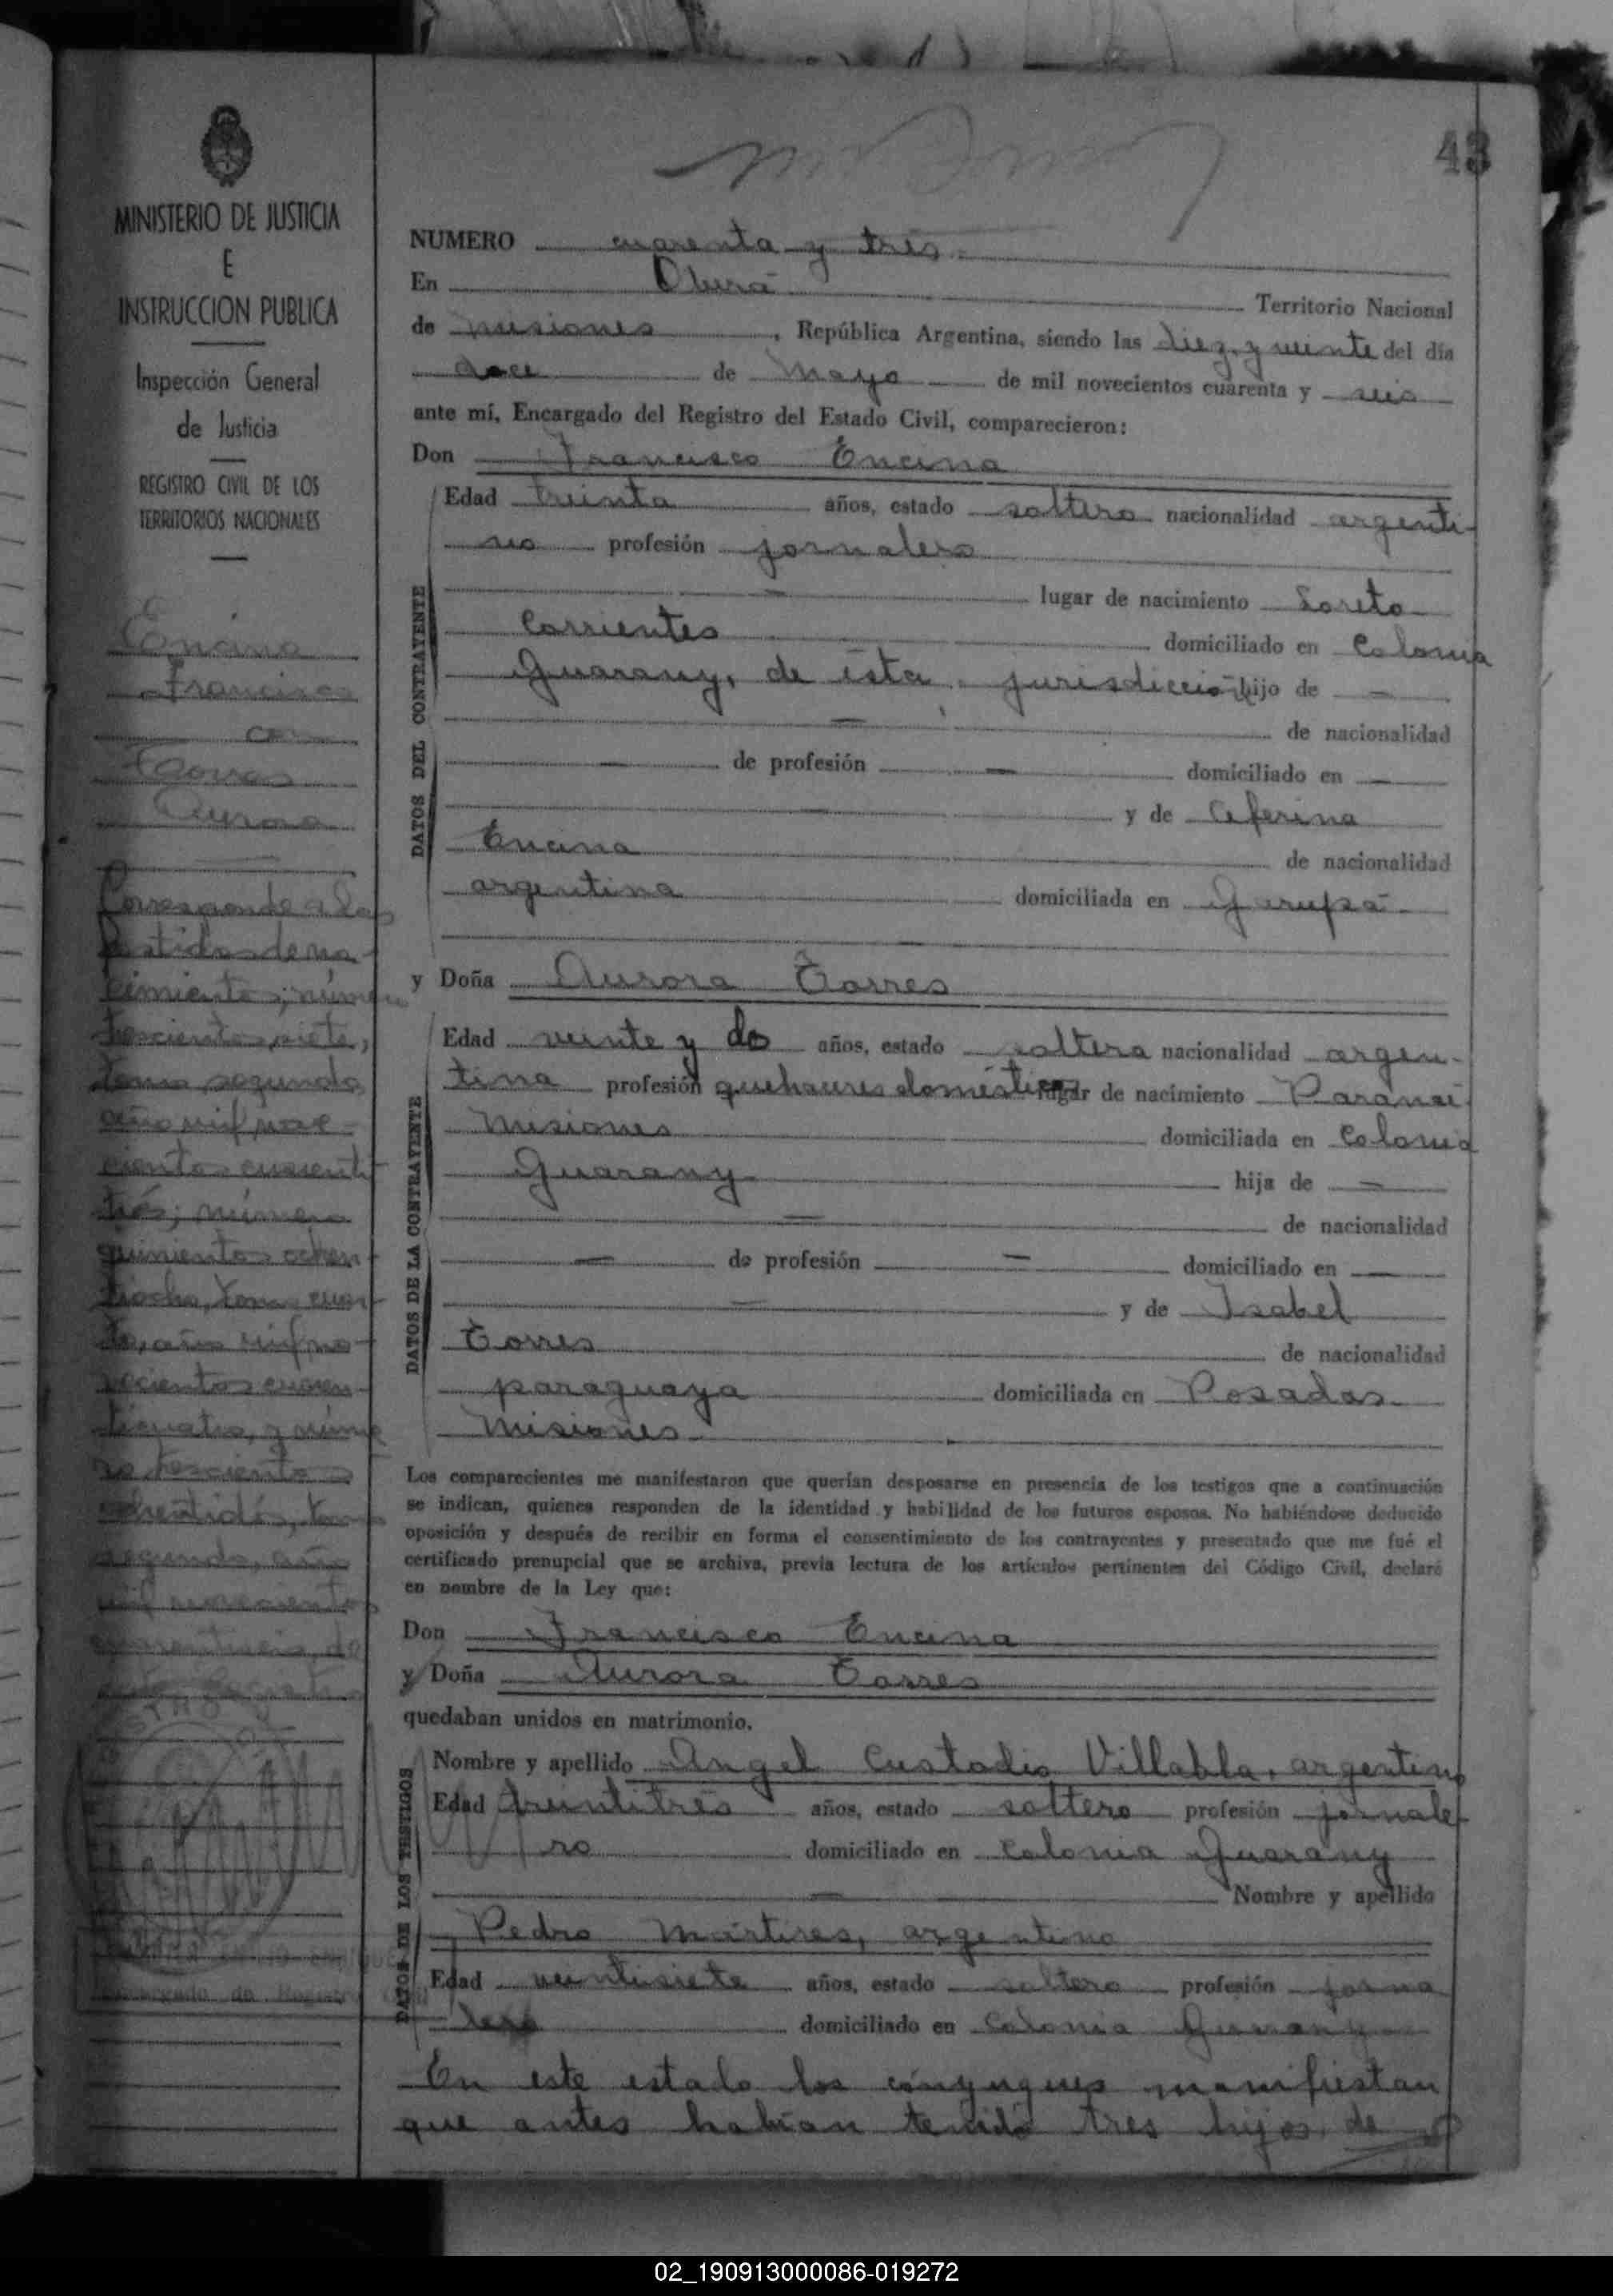 43
MINISTERIO DE JUSTICIA
E
INSTRUCCION PUBLICA
Inspección General
de Justicia
REGISTRO CIVIL DE LOS
TERRITORIOS NACIONALES
Encina
Francisco
con
Torres
Aurora
Corresponde a las
partidas de na-
cimiento; número
trescientos siete,
tomo segundo
año mil nove-
cientos cuarenti
trés; número
quinientos ochen-
tiocho, tomo cuar-
to, año mil no-
vecientos cuaren-
ticuatro, y núme
ro trescientos
ochentidós, tomo
segundo, año
mil novecientos
cuarentiseis, de
NUMERO cuarenta y trés
En Oberá Territorio Nacional
de misiones, República Argentina, siendo las diez y veinte del día
doce de Mayo de mil novecientos cuarenta y seis
ante mí, Encargado del Registro del Estado Civil, comparecieron:
Don Francisco Encina
DATOS DEL CONTRAYENTE
Edad treinta años, estado soltero nacionalidad argenti-
no profesión jornalero
lugar de nacimiento Loreto
Corrientes domiciliado en Colonia
Guarany, de ésta jurisdicción hijo de —
— de nacionalidad
— de profesión — domiciliado en —
— y de Ceferina
Encina de nacionalidad
argentina domiciliada en Garupá
y Doña Aurora Torres
DATOS DE LA CONTRAYENTE
Edad veinte y dos años, estado soltera nacionalidad argen-
tina profesión quehaceres domésticos lugar de nacimiento Paranaí
Misiones domiciliada en Colonia
Guarany hija de —
— de nacionalidad
— de profesión — domiciliado en —
— y de Isabel
Torres de nacionalidad
paraguaya domiciliada en Posadas
Misiones
Los comparecientes me manifestaron que querían desposarse en presencia de los testigos que a continuación
se indican, quienes responden de la identidad y habilidad de los futuros esposos. No habiéndose deducido
oposición y después de recibir en forma el consentimiento de los contrayentes y presentado que me fué el
certificado prenupcial que se archiva, previa lectura de los artículos pertinentes del Código Civil, declaré
en nombre de la Ley que:
Don Francisco Encina
y Doña Aurora Torres
quedaban unidos en matrimonio.
DATOS DE LOS TESTIGOS
Nombre y apellido Angel Custodio Villabla, argentino
Edad treintitrés años, estado soltero profesión jornale-
ro domiciliado en Colonia Guarany
— Nombre y apellido
Pedro Mártires, argentino
Edad veintisiete años, estado soltero profesión jorna
lero domiciliado en Colonia Guarany
En este estado los cónyugues manifiestan
que antes habían tenido tres hijos, de
02_190913000086-019272